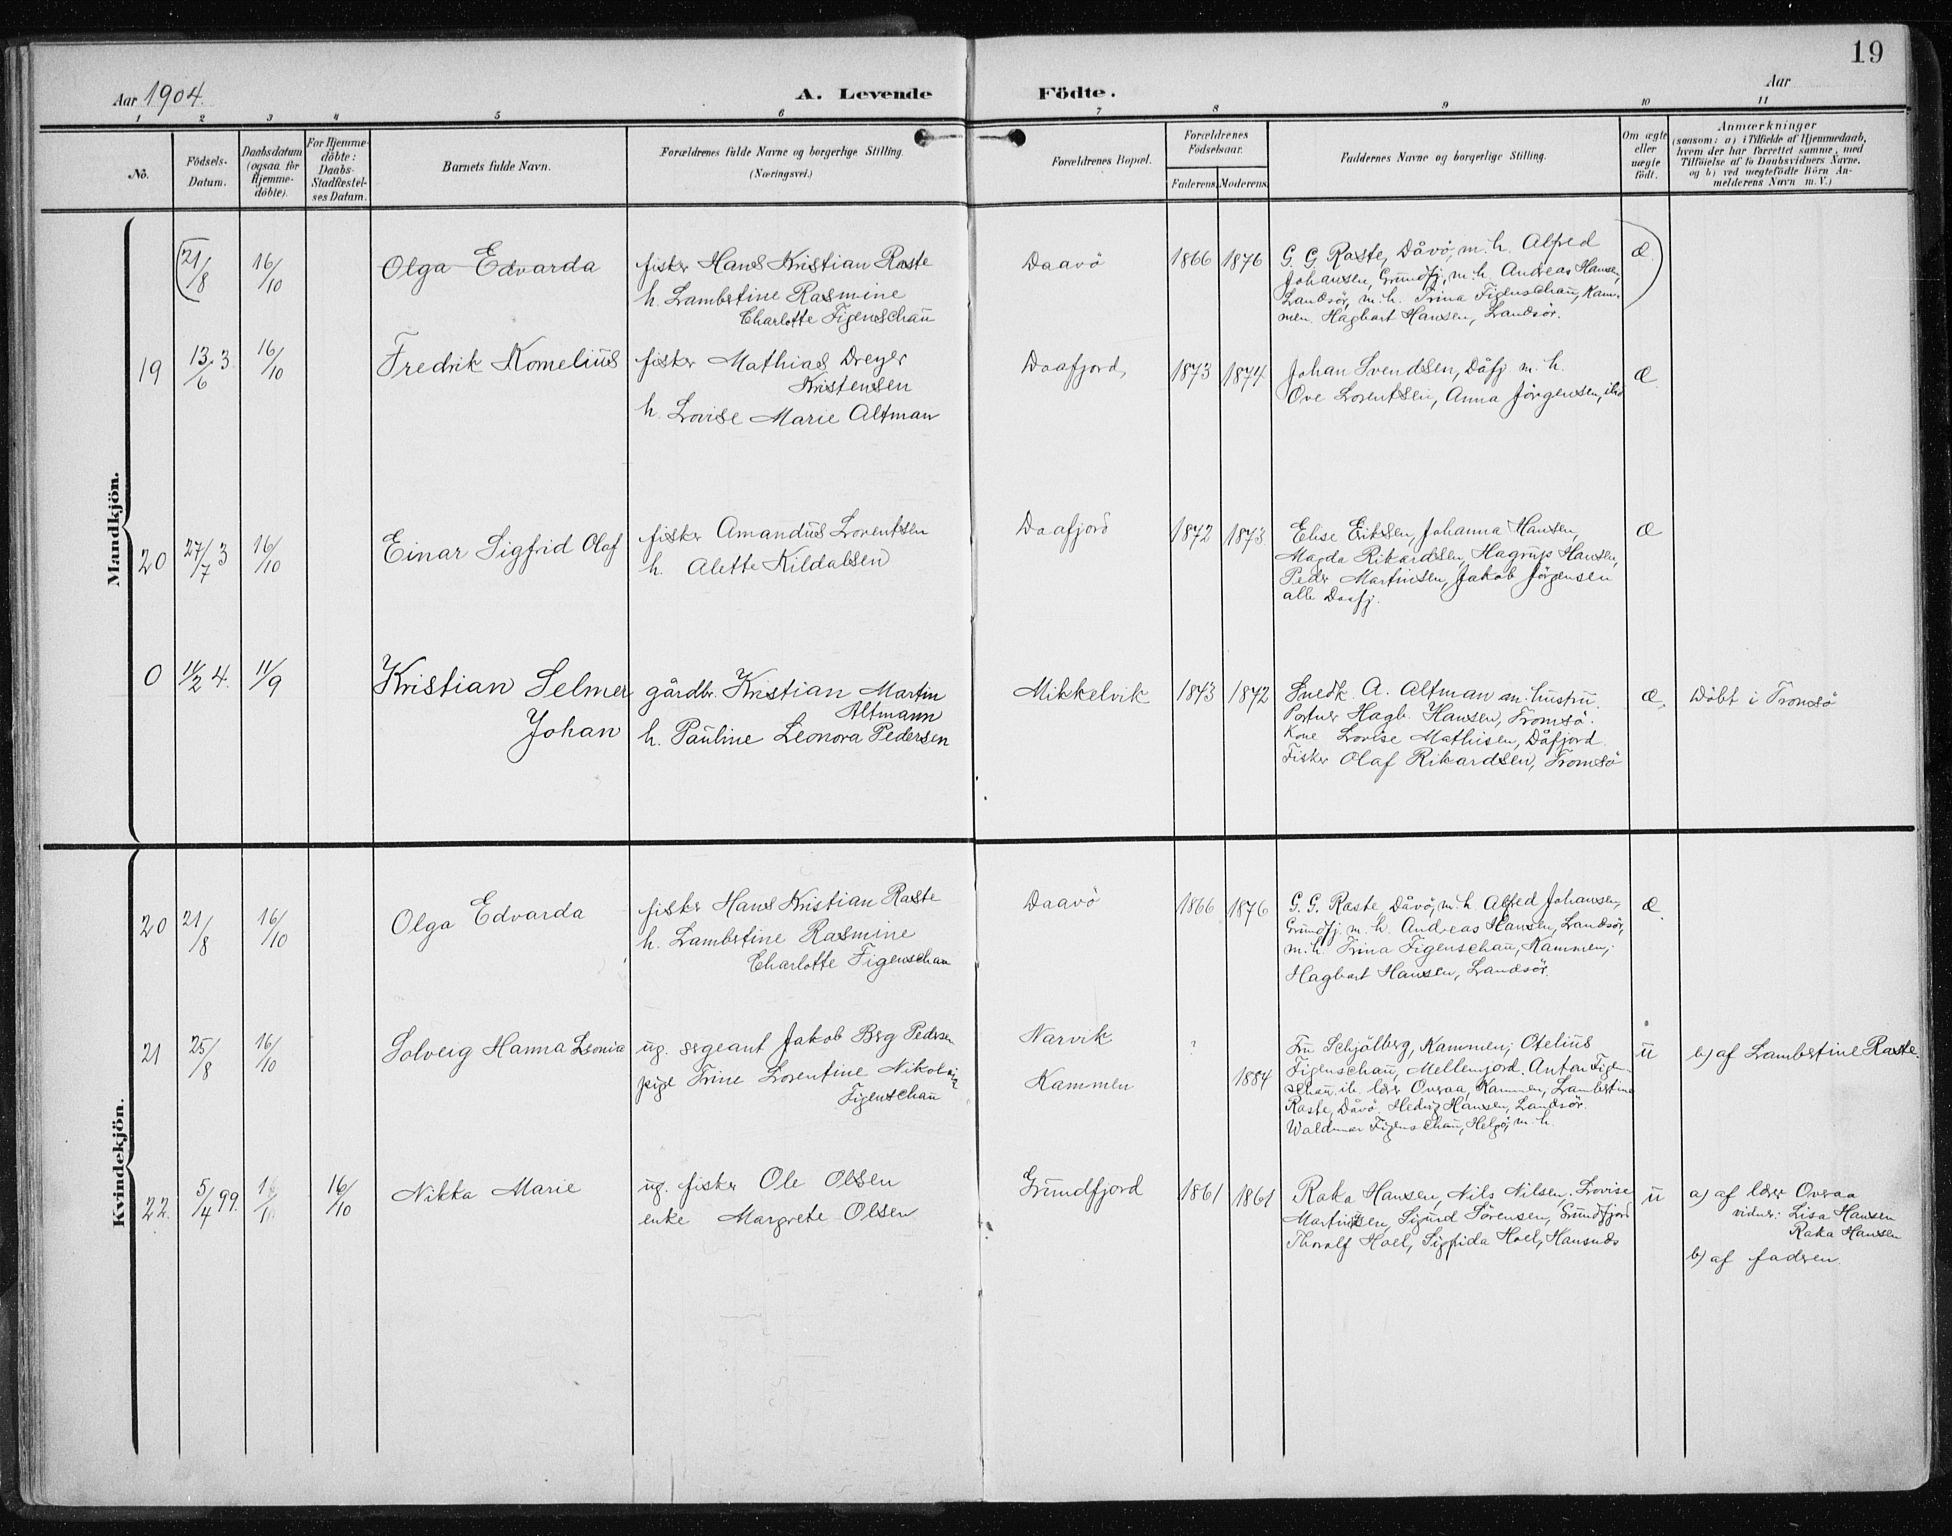 19
Aar 1904. A. Levende Födte. Aar
1 2 3 4 5 6 7 8 9 10 11
No.
Födsels-Datum.
Daabsdatum (ogsaa for Hjemme-döbte).
For Hjemme-döbte: Daabs-Stadfæstel-ses Datum.
Barnets fulde Navn.
Forældrenes fulde Navne og borgerlige Stilling. (Næringsvei.)
Forældrenes Bopæl.
Forældrenes Födselsaar.
Faderens. Moderens.
Faddernes Navne og borgerlige Stilling.
Om ægte eller uægte födt.
Anmærkninger
(saasom: a) i Tilfælde af Hjemmedaab,
hvem der har forrettet samme, med
Tilföielse af to Daabsvidners Navne,
og b) ved uægtefödte Börn An-
melderens Navn m. V.)
Mandkjön.
21/8 16/10 Olga Edvarda
fisker Hans Kristian Raste
h. Lambertine Rasmine
Charlotte Figenschau
Daavö 1866 1876
G. G. Raste, Dåvö, m. h. Alfred
Johansen, Grundfj, m. h. Andreas Hansen,
Landsör, m. h. Trina Figenschau, Kam-
men. Hagbart Hansen, Landsör.
Æ.
19 13/6 3 16/10 Fredrik Kornelius
fisker Mathias Dreyer
Kristensen
h. Lovise Marie Altman
Daafjord, 1873 1874
Johan Svendsen, Dåfj. m. h.
Ove Lorentsen, Anna Jörgensen, ibid
Æ.
20 27/7 3 16/10 Einar Sigfrid Olaf
fisker Amandus Lorentsen
h. Alette Kildalsen
Daafjord 1872 1873
Elise Eriksen, Johanna Hansen,
Magda Rikardsen, Hagrup Hansen,
Peder Martinsen, Jakob Jörgensen
alle Daafj.
Æ
0 11/2 4. 11/9 Kristian Selmer
Johan
gårdbr. Kristian Martin
Altmann
h. Pauline Leonora Pedersen
Mikkelvik 1843 1872
Snedk. A. Altman m. hustru.
Portner Hagb. Hansen, Tromsö.
Kone Lovise Mathisen, Dåfjord.
Fisker Olaf Rikardsen, Tromsö
Æ. Döbt i Tromsö
Kvindekjön.
20 21/8 16/10 Olga Edvarda
fisker Hans Kristian Raste
h. Lambertine Rasmine
Charlotte Figenschau
Daavö 1866 1876
G. G. Raste Dåvö, m. h. Alfred Johansen,
Grundfj. m. h. Andreas Hansen, Landsör,
m. h. Trina Figenschau, Kammen,
Hagbart Hansen, Landsör.
Æ.
21 25/8 16/10 Solveig Hanna Leonia
ug. sergeant Jakob Berg Pedersen
pige Trine Lorentine
Figenschau
Narvik ?
Kammen 1884
Fru Schjölberg, Kammen; Otelius
Figenschau, Mellemjord. Anton Figen-
schau ib. lærer Overaa, Kammen, Lambertine
Raste, Dåvö. Hedvig Hansen, Landsör.
Waldemar Figenschau, Helgö, m. h.
u b) af Lambertine Raste.
22. 5/4 99. 16/10 Nikka Marie
ug. fisker Ole Olsen
enke Margrete Olsen
Grundfjord 1861 1861
Raka Hansen, Nils Nilsen, Lovise
Martinsen, Sigurd Sörensen, Grundfjord
Thoralf Hoel, Sigfrida Hoel,
u a) af lærer Overaa
vidner: Lisa Hansen
Raka Hansen
b) af faderen.